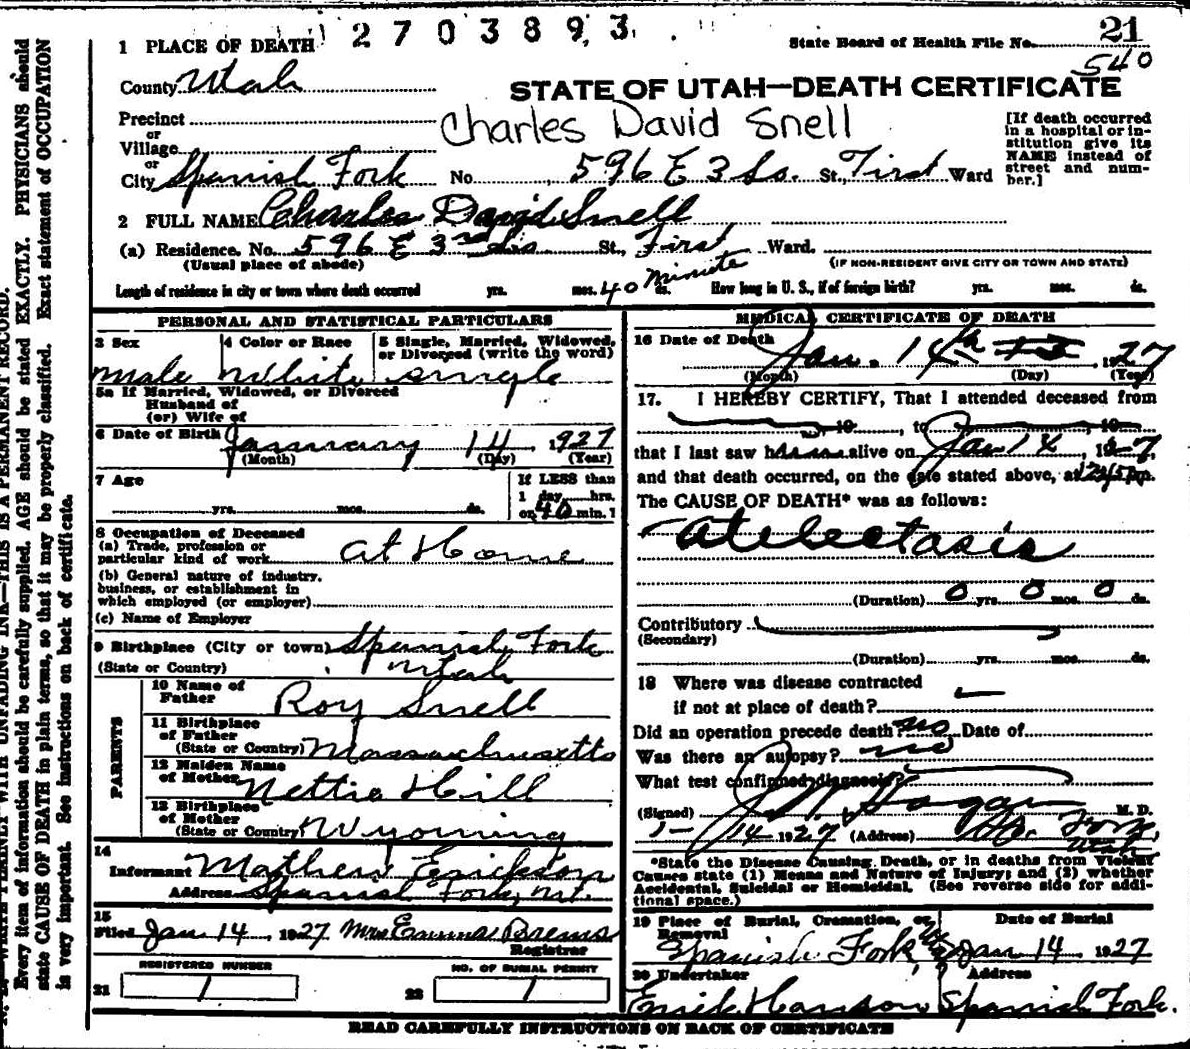 2703893
21
State Board of Health File No.
540
1 PLACE OF DEATH
County Utah
STATE OF UTAH—DEATH CERTIFICATE
Precinct
or
Village
or
City Spanish Fork No. 596 E 3 So. St., First Ward
Charles David Snell
[If death occurred
in a hospital or in-
stitution give its
NAME instead of
street and num-
ber.]
2 FULL NAME Charles David Snell
(a) Residence. No. 596 E 3rd So St., First Ward.
(Usual place of abode)
(IF NON-RESIDENT GIVE CITY OR TOWN AND STATE)
Length of residence in city or town where death occurred yrs. mos. 40 minute ds. How long in U. S., if of foreign birth? yrs. mos. ds.
PERSONAL AND STATISTICAL PARTICULARS
3 Sex
Male
4 Color or Race
White
5 Single, Married, Widowed,
or Divorced (write the word)
single
5a If Married, Widowed, or Divorced
Husband of
(or) Wife of
6 Date of Birth January 14, 1927
(Month) (Day) (Year)
7 Age
yrs. mos. ds.
If LESS than
1 day, hrs.
or 40 min.
8 Occupation of Deceased
(a) Trade, profession or
particular kind of work At Home
(b) General nature of industry,
business, or establishment in
which employed (or employer)
(c) Name of Employer
9 Birthplace (City or town) Spanish Fork
(State or Country) Utah
PARENTS
10 Name of
Father Roy Snell
11 Birthplace
of Father
(State or Country) Massachusetts
12 Maiden Name
of Mother Nettie Hill
13 Birthplace
of Mother
(State or Country) Wyoming
14
Informant Mathew Erickson
Address Spanish Fork, Ut.
15
Filed Jan 14, 1927 Mrs Emma Brems
Registrar
REGISTERED NUMBER
21 1
NO. OF BURIAL PERMIT
22 1
MEDICAL CERTIFICATE OF DEATH
16 Date of Death
Jan. 14th 13, 1927
(Month) (Day) (Year)
17. I HEREBY CERTIFY, That I attended deceased from
, 19 , to , 19
that I last saw h alive on Jan 14, 1927,
and that death occurred, on the date stated above, at m.
The CAUSE OF DEATH* was as follows:
Atelectasis
(Duration) 0 yrs. 0 mos. 0 ds.
Contributory
(Secondary)
(Duration) yrs. mos. ds.
18 Where was disease contracted
if not at place of death?
Did an operation precede death? no Date of
Was there an autopsy? no
What test confirmed diagnosis?
(Signed) Hagan M. D.
1-14 1927 (Address) Sp. Fork,
Utah
*State the Disease Causing Death, or in deaths from Violent
Causes state (1) Means and Nature of Injury; and (2) whether
Accidental, Suicidal or Homicidal. (See reverse side for addi-
tional space.)
19 Place of Burial, Cremation, or
Removal
Spanish Fork
Date of Burial
Jan 14 1927
20 Undertaker
Address
Hanson Spanish Fork.
READ CAREFULLY INSTRUCTIONS ON BACK OF CERTIFICATE
Every item of information should be carefully supplied. AGE should be stated EXACTLY. PHYSICIANS should
state CAUSE OF DEATH in plain terms, so that it may be properly classified. Exact statement of OCCUPATION
is very important. See instructions on back of certificate.